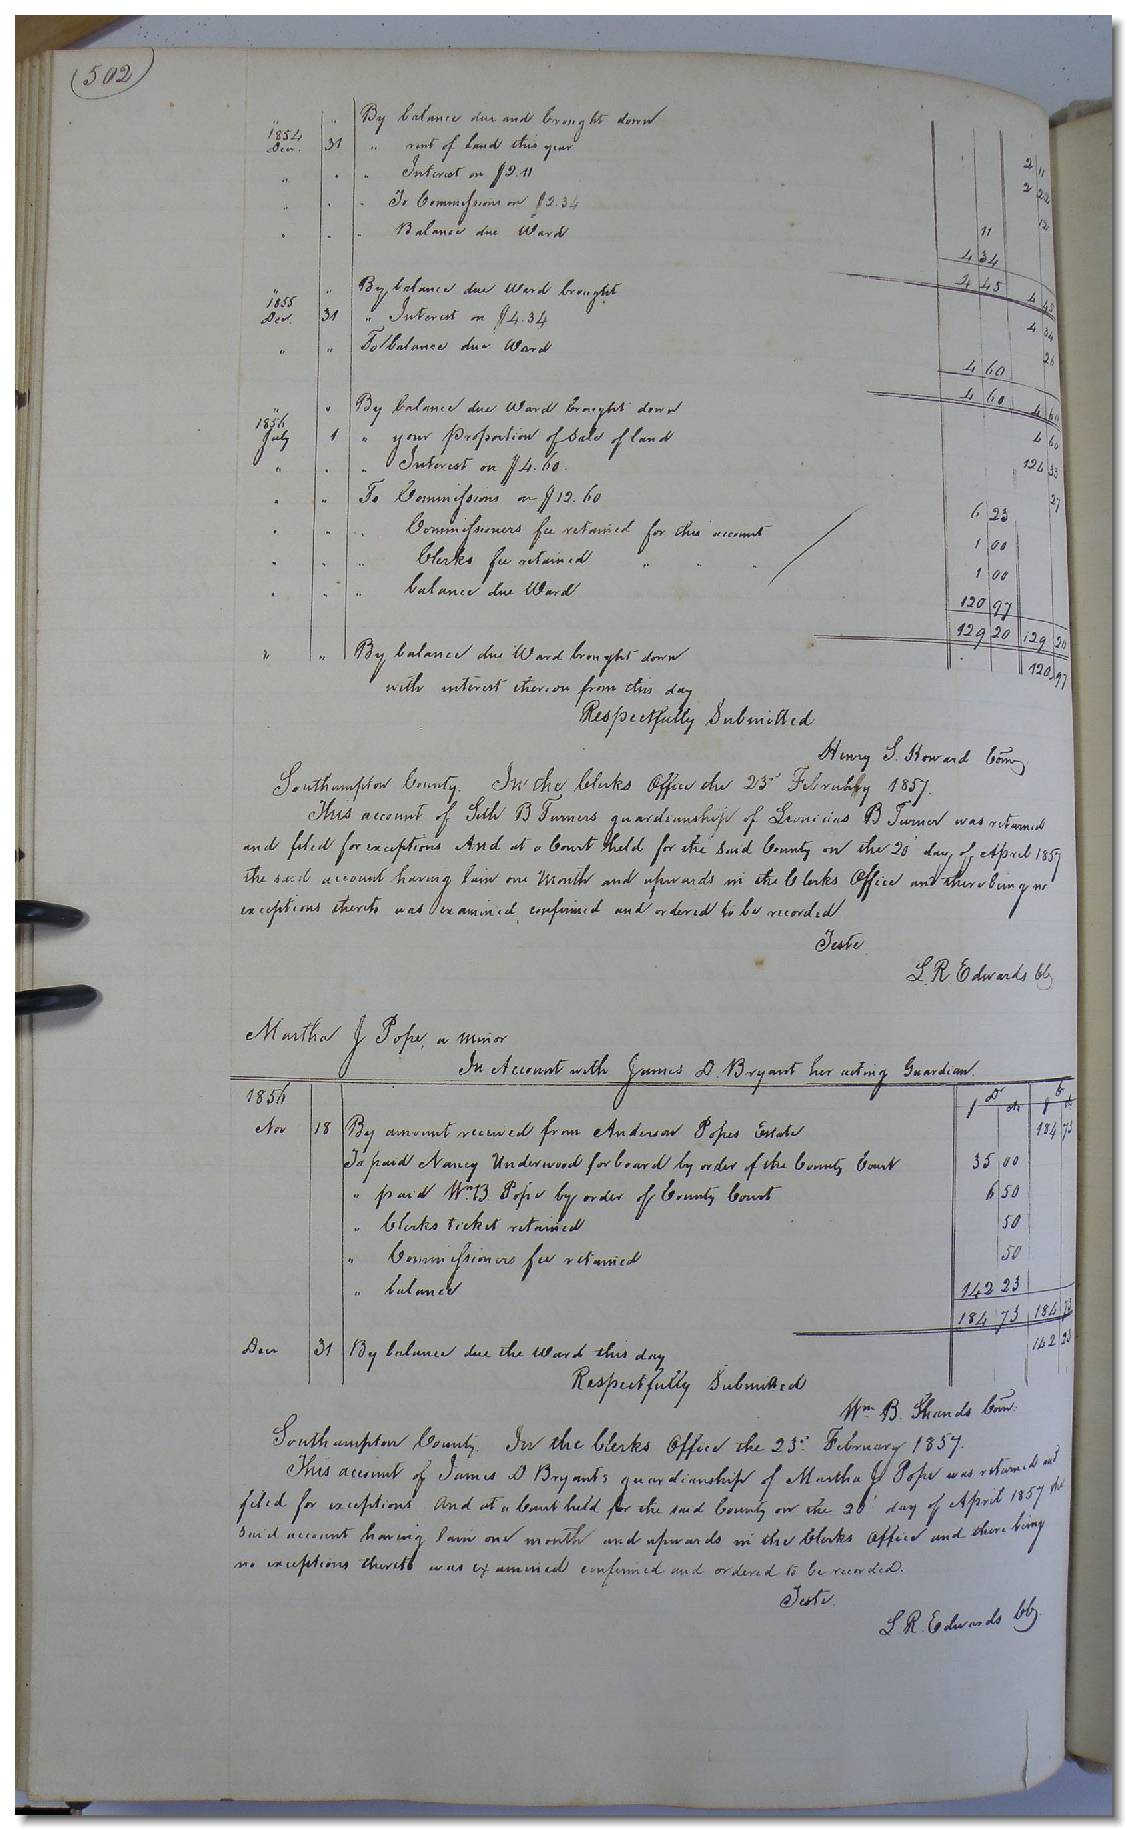 (502)
" " By balance due and brought down 2 11
1854 Decr. 31 " rent of land this year 2 22
" " " Interest on $2.11 12
" " " To Commissions on $2.34 11
" " " Balance due Ward 4 34
4 45 4 45
" " By balance due Ward brought 4 34
1855 Decr. 31 " Interest on $4.34 26
" " To balance due Ward 4 60
4 60 4 60
" " By balance due Ward brought down 4 60
1856 July 1 " your proportion of sale of land 124 33
" " " Interest on $4.60 27
" " To Commissions on $12.60 6 23
" " " Commissioners fee retained for this account 1 00
" " " Clerks fee retained " " " 1 00
" " " balance due Ward 120 97
129 20 129 20
" " By balance due Ward brought down 120 97
with interest thereon from this day
Respectfully Submitted
Henry S. Howard Comr
Southampton County. In the Clerks Office the 23d February 1857.
This account of Seth B Turners guardianship of B Turner was returned
and filed for exceptions And at a Court held for the said County on the 20 day of April 1857
the said account having lain one Month and upwards in the Clerks Office and there being no
exceptions thereto was examined, confirmed and ordered to be recorded
Teste.
L. R. Edwards Clk
Martha J Pope, a minor
In Account with James D. Bryant her acting Guardian.
1856 Dr Cr
$ cts $ cts
Nov 18 By amount received from Anderson Popes Estate 184 73
To paid Nancy Underwood for board by order of the County Court 35 00
" paid Wm B Pope by order of County Court 6 50
" Clerks ticket retained 50
" Commissioners fee retained 50
" balance 142 23
184 73 184 73
Decr 31 By balance due the Ward this day 142 23
Respectfully Submitted
Wm B. Shands Comr.
Southampton County. In the Clerks Office the 23d February 1857.
This account of James D Bryants guardianship of Martha J Pope was returned and
filed for exceptions And at a Court held for the said County on the 20 day of April 1857 the
said account having lain one month and upwards in the Clerks Office and there being
no exceptions thereto was examined confirmed and ordered to be recorded.
Teste.
L. R. Edwards Clk